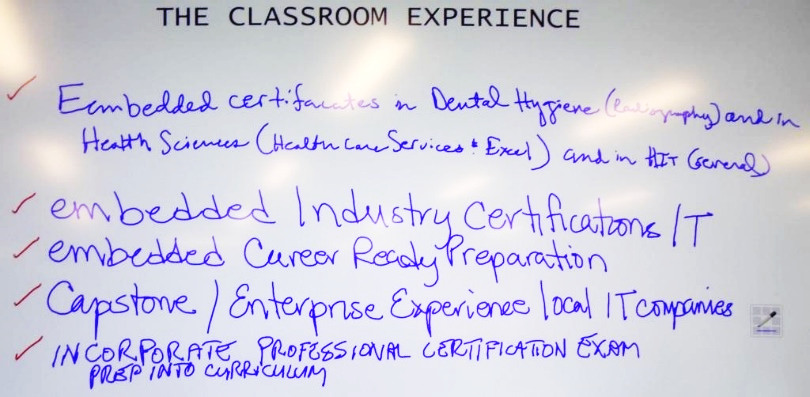 THE CLASSROOM EXPERIENCE
Eembedded certifacates in Dental Hygiene (Radiography) and in
Health Sciences (Healthcare Services & Excel) and in HIT (General)
embedded Industry Certifications IT
embedded Career Ready Preparation
Capstone / Enterprise Experience local IT companies
INCORPORATE PROFESSIONAL CERTIFICATION EXAM
PREP INTO CURRICULUM